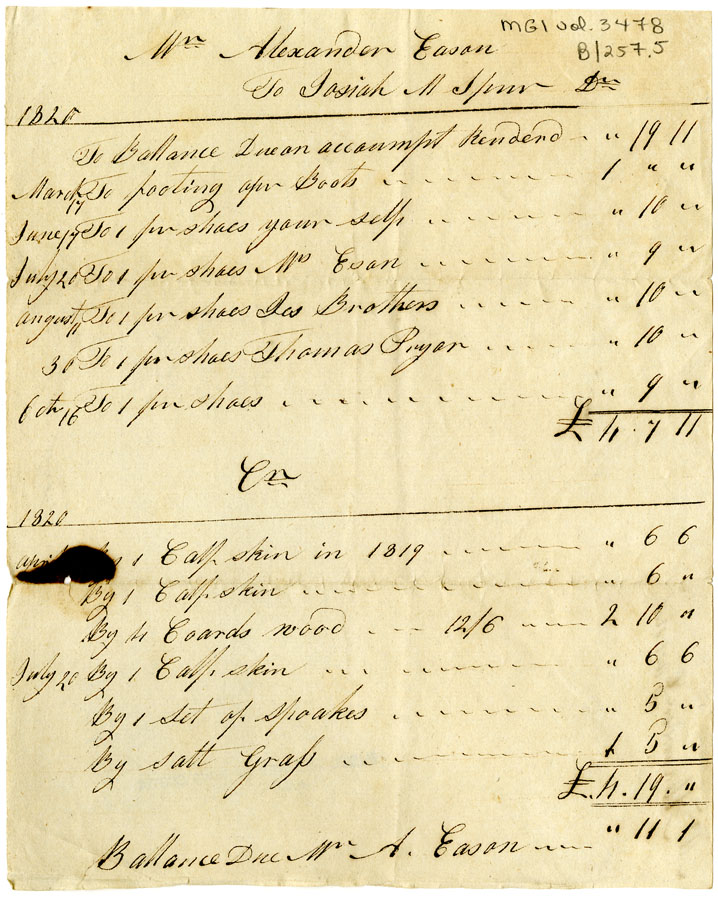 MG1 vol. 3478
B/257.5
Mr Alexander Eason
To Josiah M Spurr Dr
1820
To Ballance Due on accoumpt Renderd " 19 11
March 17 To footing a pr Boots 1 " "
June 17 To 1 pr shoes your self " 10 "
July 20 To 1 pr shoes Mrs Eson " 9 "
august 11 To 1 pr shoes Jas Brothers " 10 "
30 To 1 pr shoes Thomas Pryor " 10 "
Octr 16 To 1 pr shoes " 9 "
£ 4 . 7 11
Cr
1820
april By 1 Calf skin in 1819 " 6 6
By 1 Calf skin " 6 "
By 4 Coards wood 12/6 2 10 "
July 20 By 1 Calf skin " 6 6
By 1 set of spoakes " 5 "
By salt Grass 1 5 "
£ . 4 . 19 . "
Ballance Due Mr A. Eason " 11 1